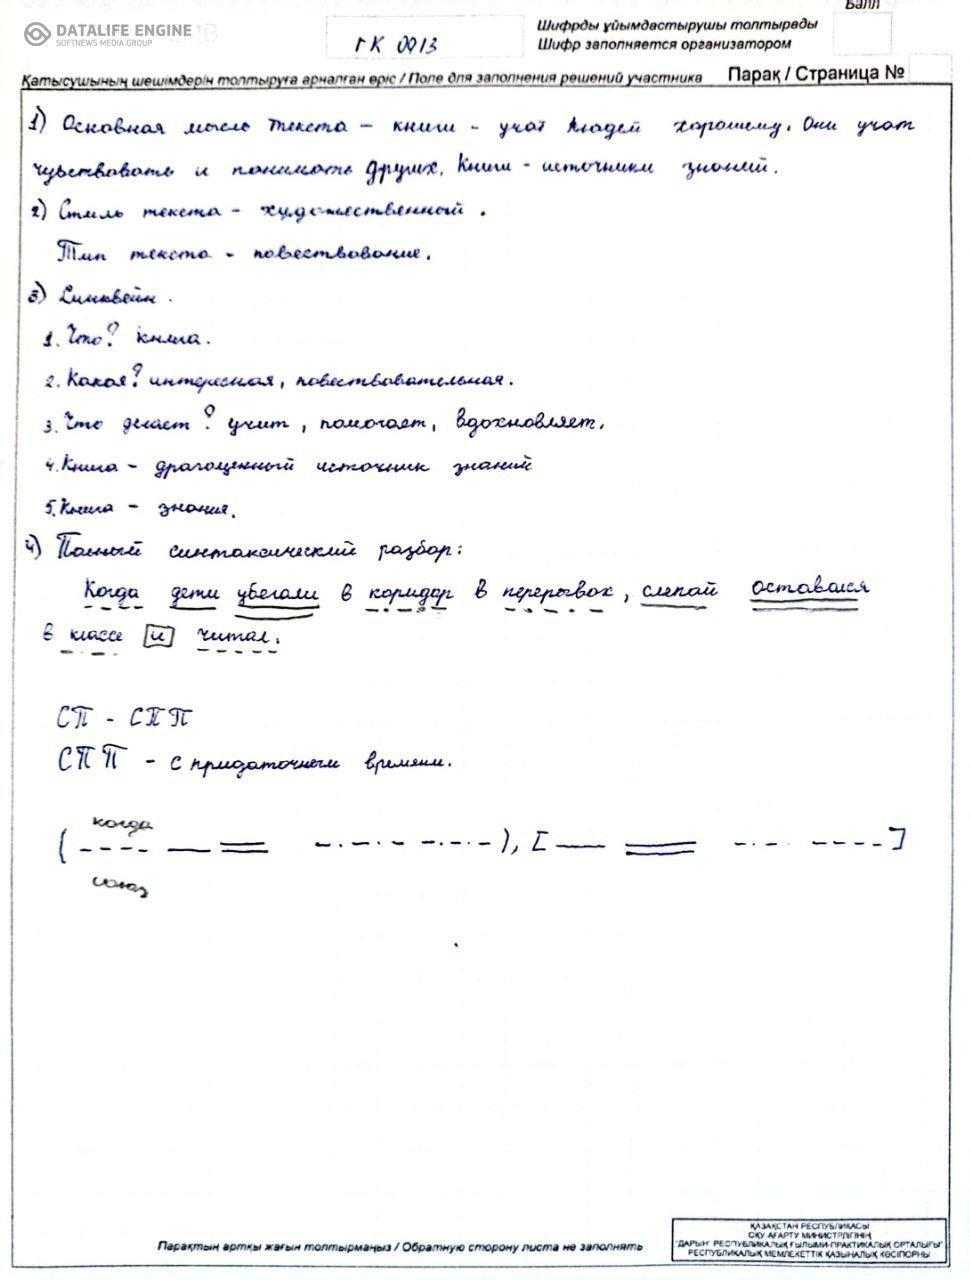 Балл
DATALIFE ENGINE
SOFTNEWS MEDIA GROUP
ГК 0013
Шифрды ұйымдастырушы толтырады
Шифр заполняется организатором
Қатысушының шешімдерін толтыруға арналған өріс / Поле для заполнения решений участника Парақ / Страница №
1) Основная мысль текста – книги - учат людей хорошему. Они учат
чувствовать и понимать других. Книги - источники знаний.
2) Стиль текста - художественный.
Тип текста - повествование.
3) Синквейн.
1. Что? книга.
2. Какая? интересная, повествовательная.
3. Что делает? учит, помогает, вдохновляет.
4. Книга - драгоценный источник знаний
5. Книга - знания.
4) Полный синтаксический разбор:
Когда дети убегали в коридор в перерывах, слепой оставался
в классе и читал.
СП - СПП
СПП - с придаточным времени.
когда
( ), [ ]
союз
Парақтың артқы жағын толтырмаңыз / Обратную сторону листа не заполнять
ҚАЗАҚСТАН РЕСПУБЛИКАСЫ
ОҚУ-АҒАРТУ МИНИСТРЛІГІНІҢ
"ДАРЫН" РЕСПУБЛИКАЛЫҚ ҒЫЛЫМИ-ПРАКТИКАЛЫҚ ОРТАЛЫҒЫ"
РЕСПУБЛИКАЛЫҚ МЕМЛЕКЕТТІК ҚАЗЫНАЛЫҚ КӘСІПОРНЫ